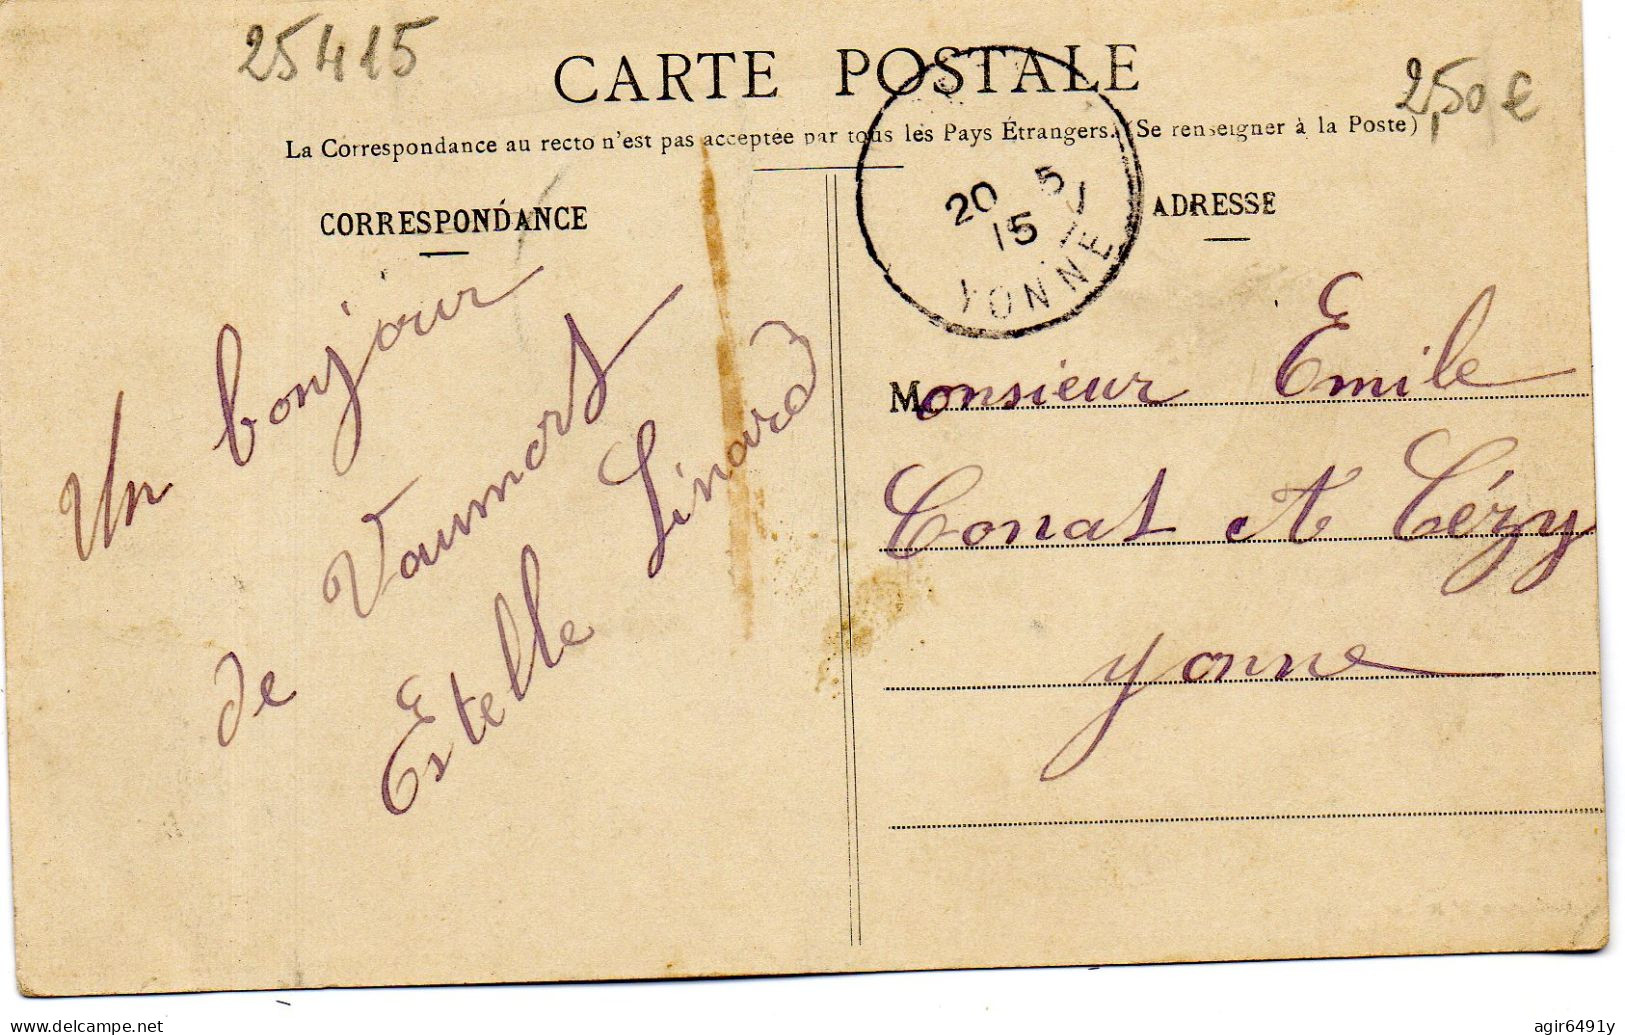 25415
CARTE POSTALE
2,50 €
La Correspondance au recto n'est pas acceptée par tous les Pays Étrangers. (Se renseigner à la Poste)
CORRESPONDANCE
Un bonjour
de Vaumort
Estelle Linard
20 5
15
YONNE
ADRESSE
Monsieur Emile
Conat et Cézy
Yonne
agir6491y
www.delcampe.net